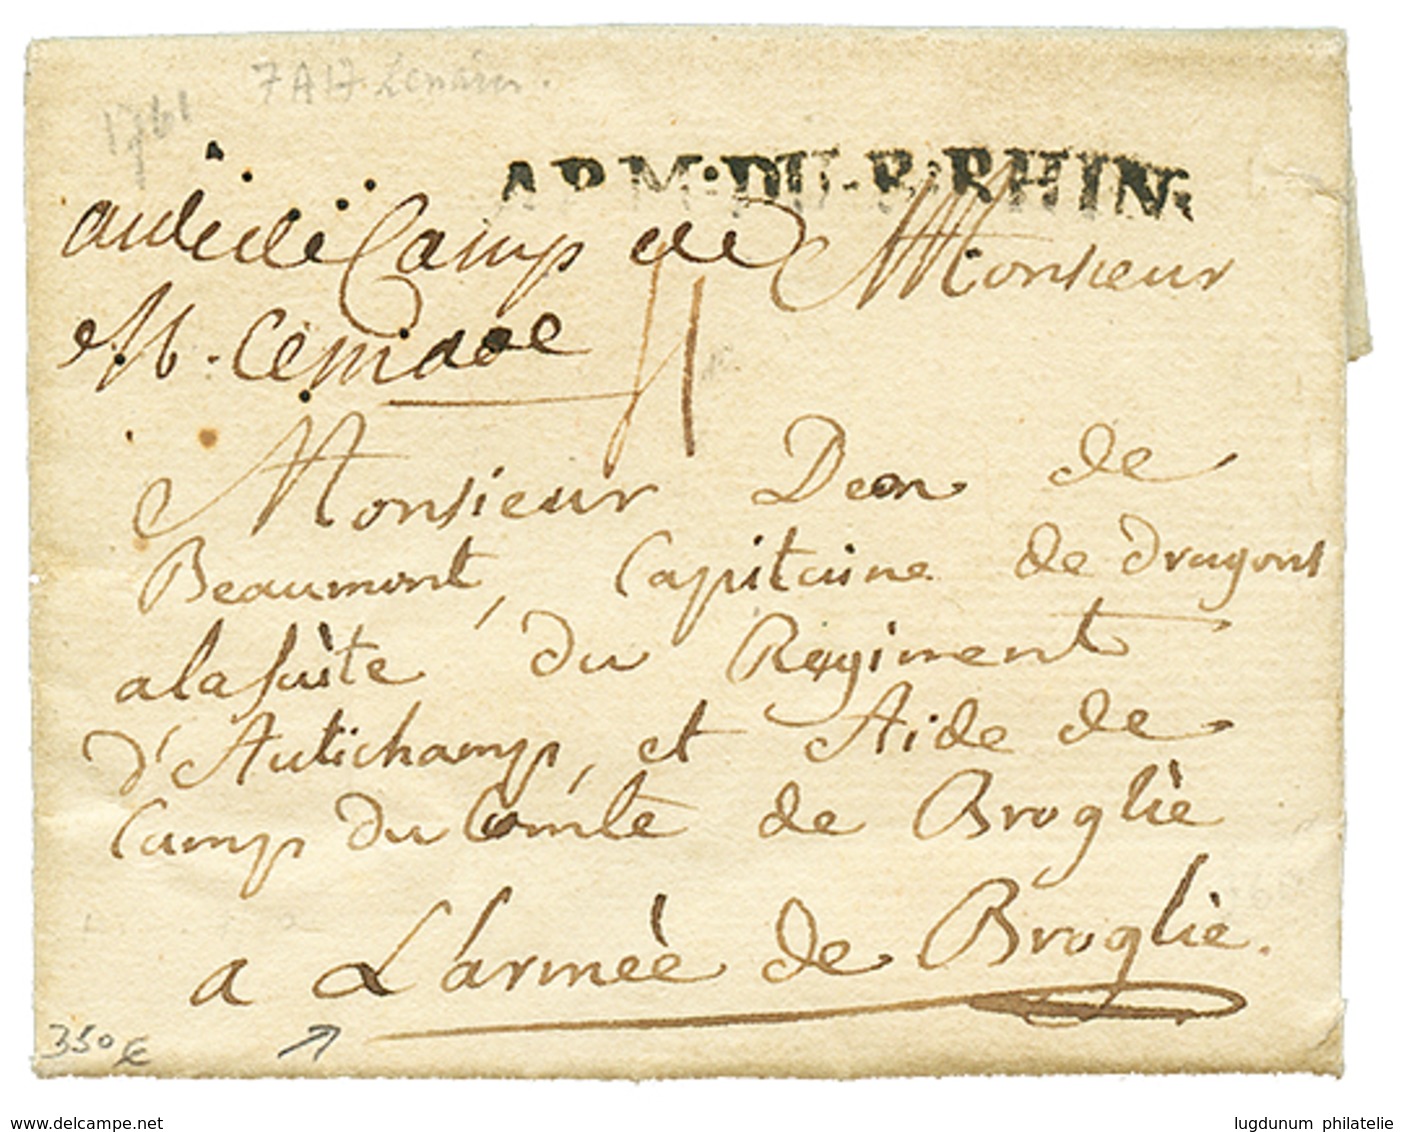 7 A 17 Lenain.
1761
ARM·DU-B·RHIN
Monsieur
aide de Camp de
M.
Monsieur Deon de
Beaumont, Capitaine de dragons
alasuite du Regiment
d'Autichamp, et Aide de
Camp du Comte de Broglie
a L'armée de Broglie.
350€
www.delcampe.net
lugdunum philatelie